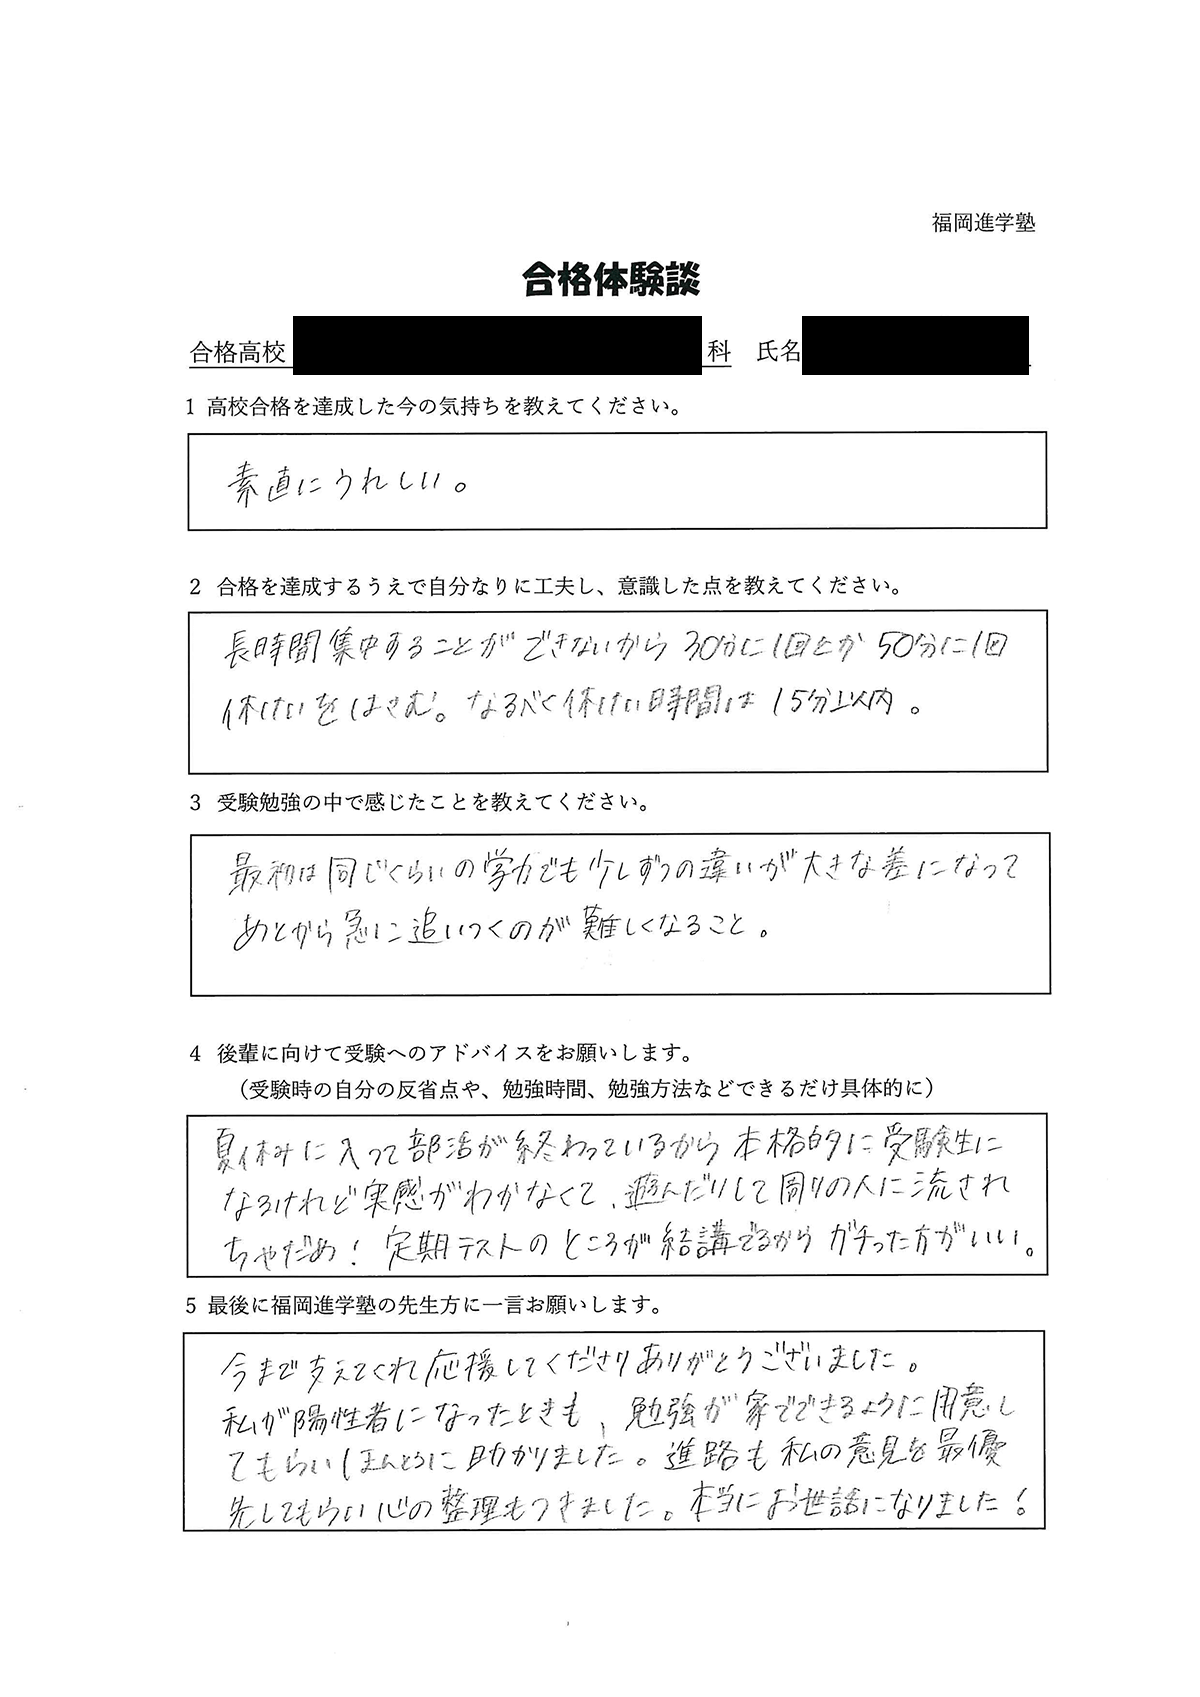 福岡進学塾
合格体験談
合格高校 科 氏名
1 高校合格を達成した今の気持ちを教えてください。
素直にうれしい。
2 合格を達成するうえで自分なりに工夫し、意識した点を教えてください。
長時間集中することができないから30分に1回とか50分に1回
休けいをはさむ。なるべく休けい時間は15分以内。
3 受験勉強の中で感じたことを教えてください。
最初は同じくらいの学力でも少しずつの違いが大きな差になって
あとから急に追いつくのが難しくなること。
4 後輩に向けて受験へのアドバイスをお願いします。
（受験時の自分の反省点や、勉強時間、勉強方法などできるだけ具体的に）
夏休みに入って部活が終わっているから本格的に受験生に
なるけれど実感がわかなくて、遊んだりして周りの人に流され
ちゃだめ！定期テストのところが結講でるからガチった方がいい。
5 最後に福岡進学塾の先生方に一言お願いします。
今まで支えてくれ応援してくださりありがとうございました。
私が陽性者になったときも、勉強が家でできるように用意し
てもらいほんとうに助かりました。進路も私の意見を最優
先してもらい心の整理もつきました。本当にお世話になりました！